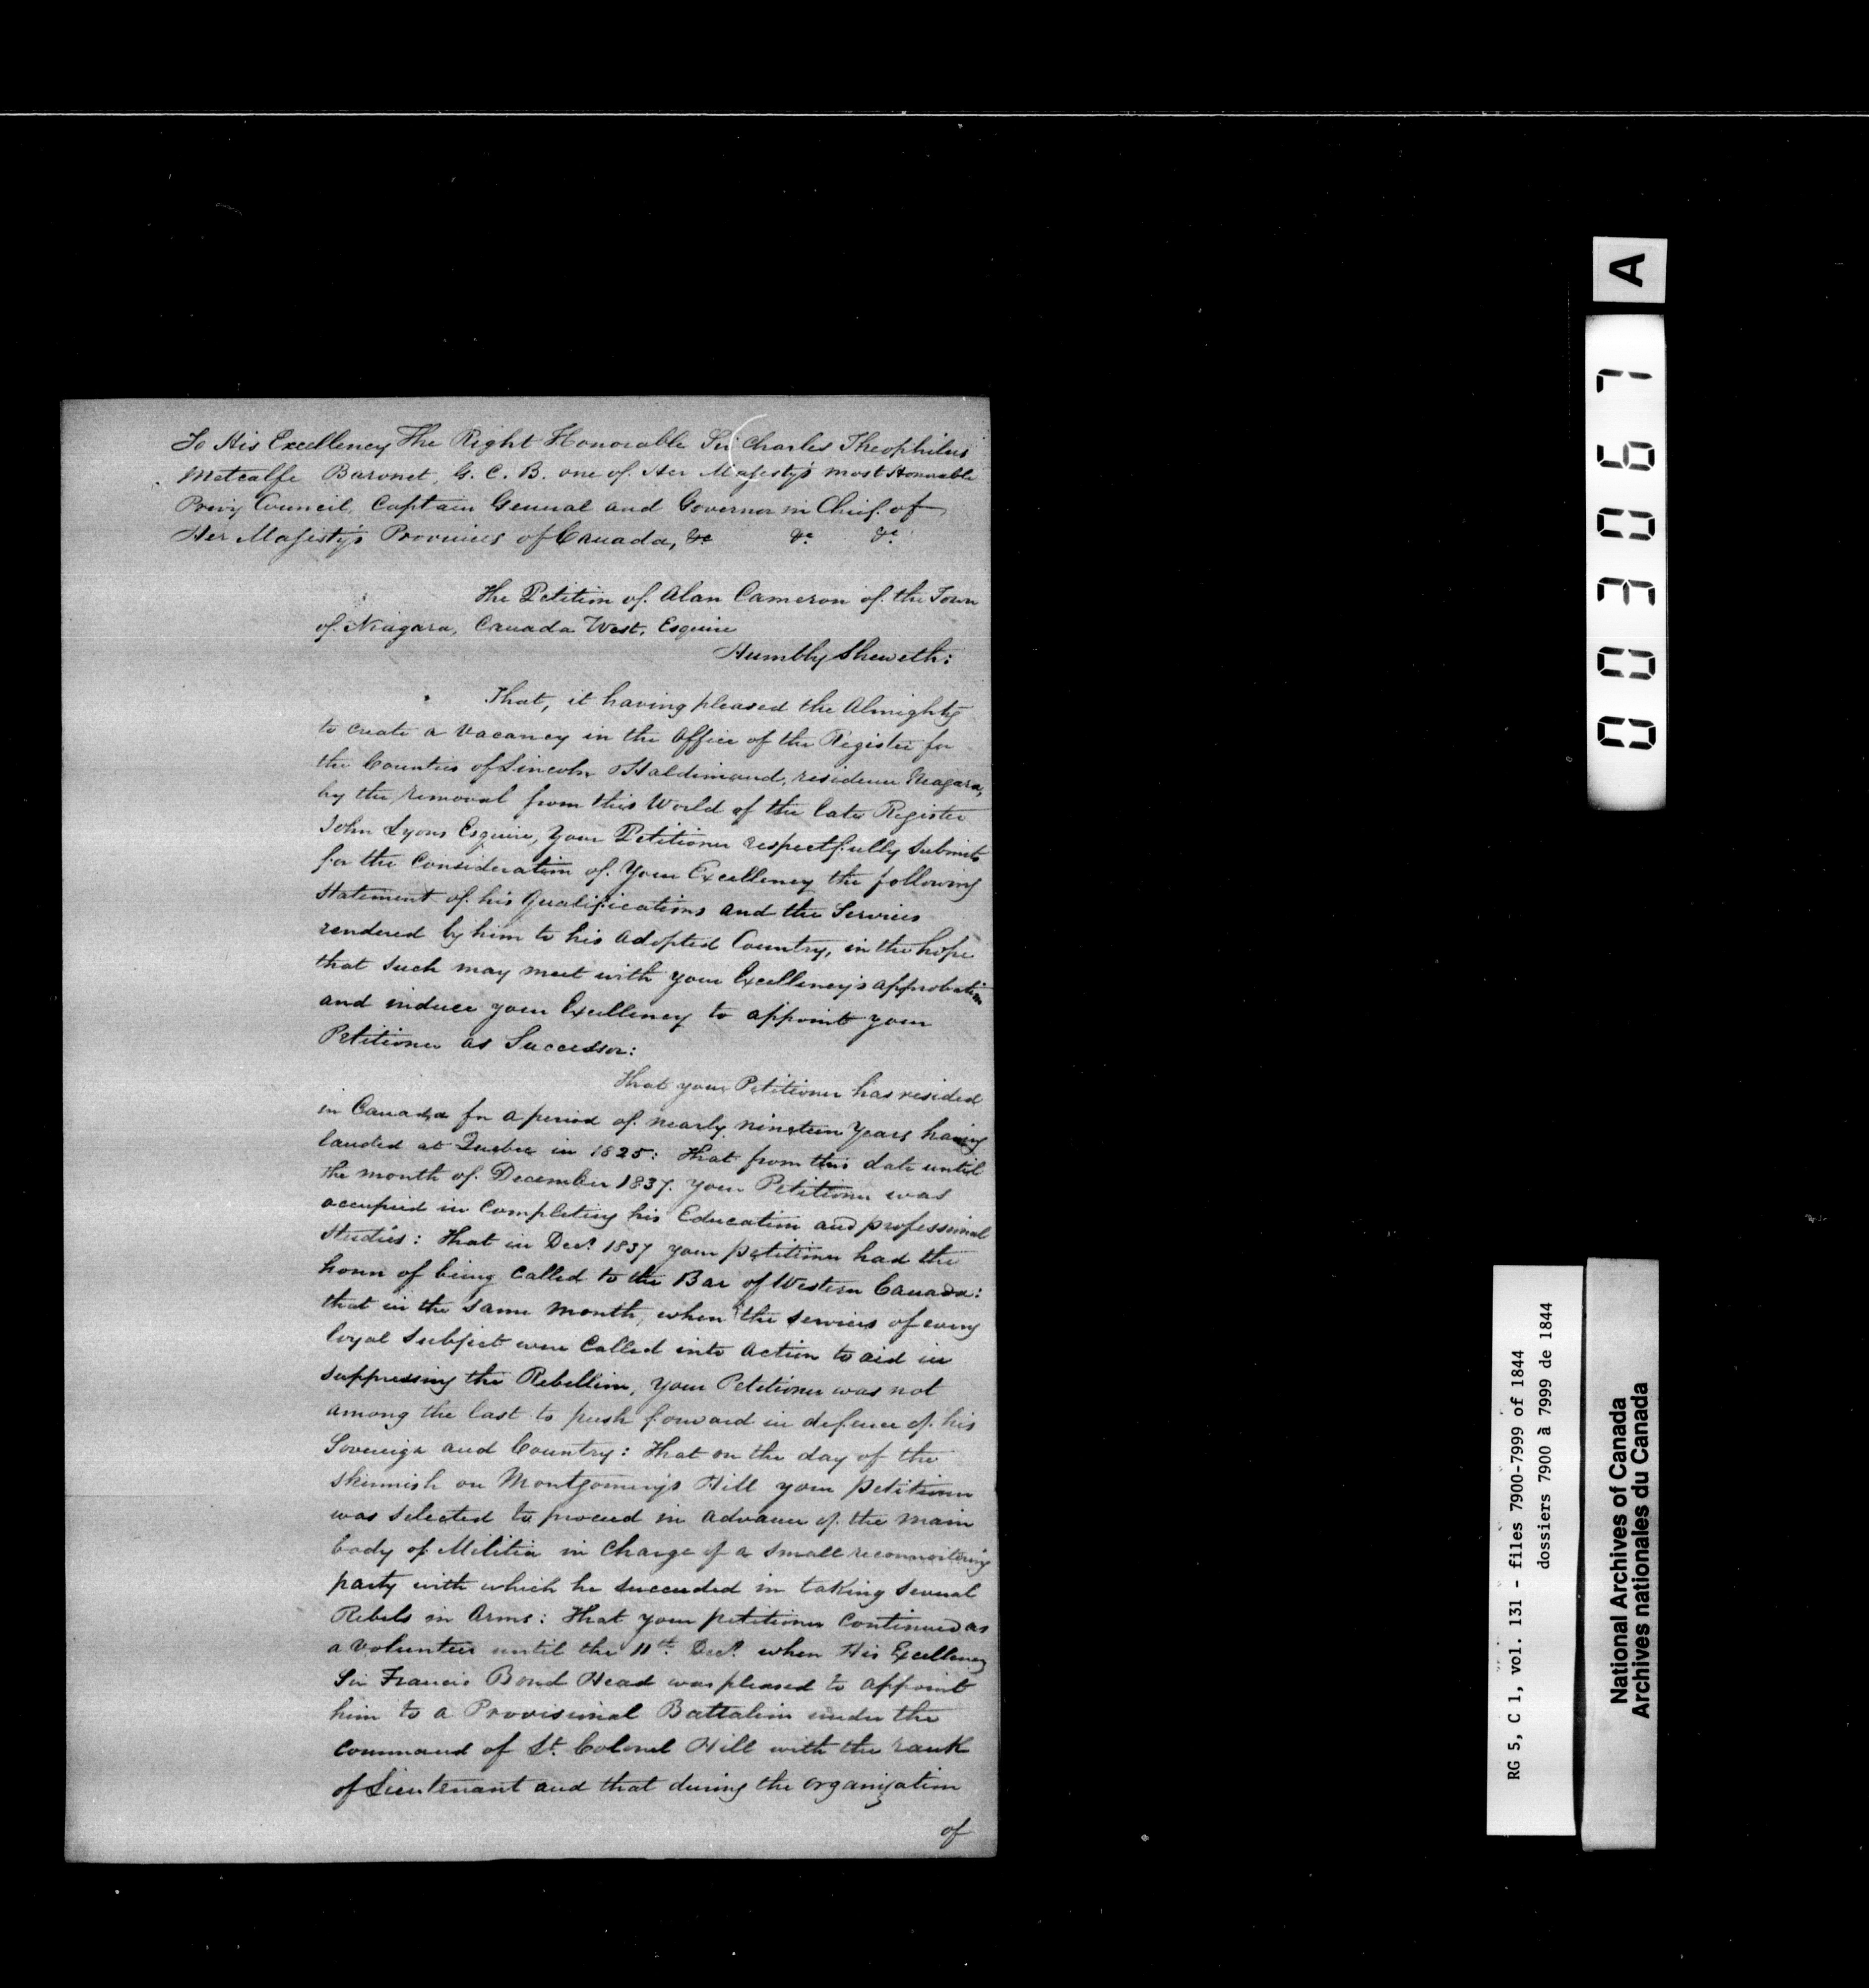 To His Excellency The Right Honorable Sir Charles Theophilus
Metcalfe Baronet, G. C. B. one of Her Majesty's most Honorable
Privy Council, Captain General and Governor in Chief of
Her Majesty's Provinces of Canada, &c &c &c
The Petition of Alan Cameron of the Town
of Niagara, Canada West, Esquire
Humbly Sheweth:
That, it having pleased the Almighty
to create a vacancy in the Office of the Register for
the Counties of Lincoln & Haldimand, residence Niagara,
by the removal from this World of the late Register
John Lyons Esquire, Your Petitioner respectfully submits
for the Consideration of Your Excellency the following
Statement of his Qualifications and the Services
rendered by him to his adopted Country, in the hope
that such may meet with your Excellency's approbation
and induce your Excellency to appoint your
Petitioner as Successor:
That your Petitioner has resided
in Canada for a period of nearly nineteen Years having
landed at Quebec in 1825: That from this date until
the month of December 1837. your Petitioner was
occupied in Completing his Education and professional
Studies: That in Decr. 1837 your petitioner had the
honor of being Called to the Bar of Western Canada:
that in the same month, when the services of every
loyal Subject were Called into action to aid in
suppressing the Rebellion, your Petitioner was not
among the last to push forward in defence of his
Sovereign and Country: That on the day of the
skirmish on Montgomery's Hill your petitioner
was selected to proceed in advance of the main
body of Militia in Charge of a small reconnoitering
party with which he succeeded in taking several
Rebels in Arms: That your petitioner Continued as
a volunteer until the 11th Decr. when His Excellency
Sir Francis Bond Head was pleased to appoint
him to a Provisional Battalion under the
Command of Lt. Colonel Hill with the rank
of Lieutenant and that during the organization
of
A
003067
RG 5, C 1, vol. 131 - files 7900-7999 of 1844
dossiers 7900 à 7999 de 1844
National Archives of Canada
Archives nationales du Canada